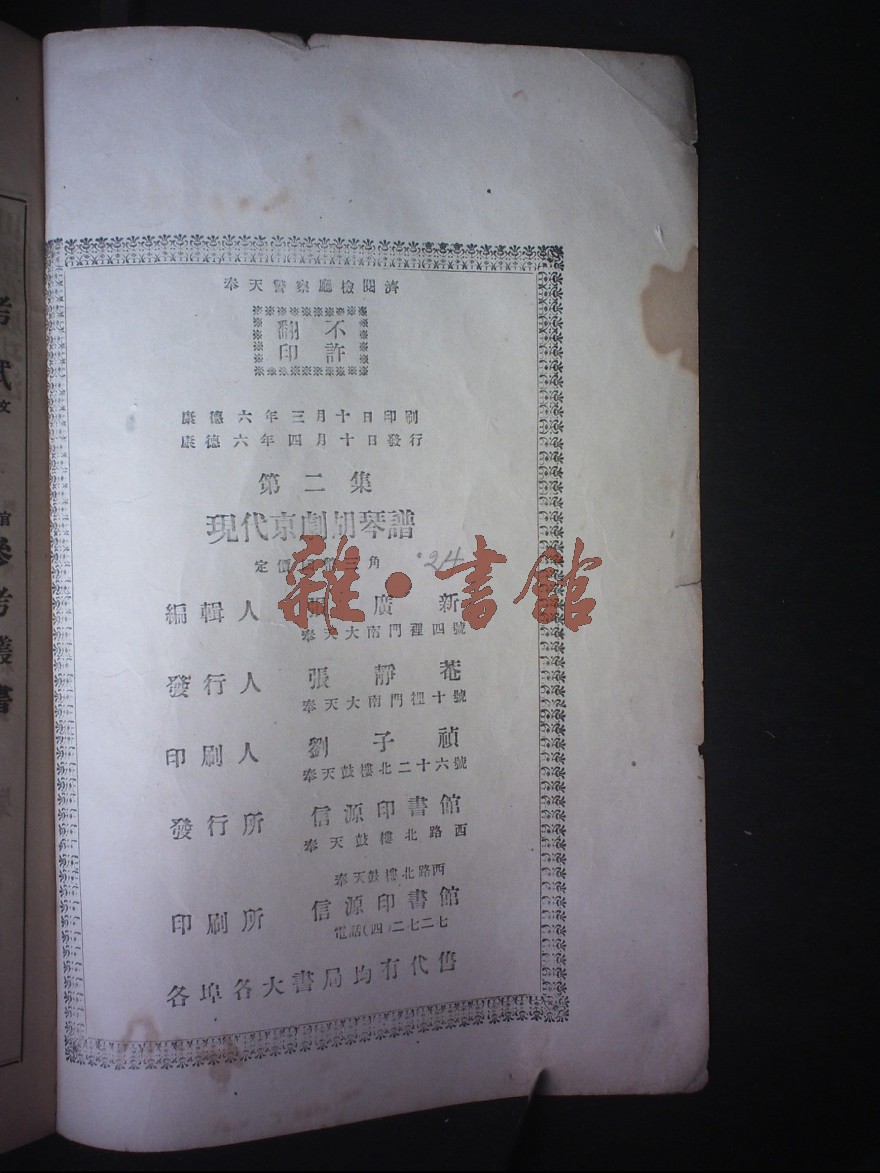 奉天警察廳檢閱濟
不許
翻印
康德六年三月十日印刷
康德六年四月十日發行
第二集
現代京劇胡琴譜
定價國幣三角
24
雜·書館
編輯人 張廣新
奉天大南門裡四號
發行人 張靜菴
奉天大南門裡十號
印刷人 劉子禎
奉天鼓樓北二十六號
發行所 信源印書館
奉天鼓樓北路西
奉天鼓樓北路西
印刷所 信源印書館
電話(四)二七二七
各埠各大書局均有代售
考試
文
館
參考叢書